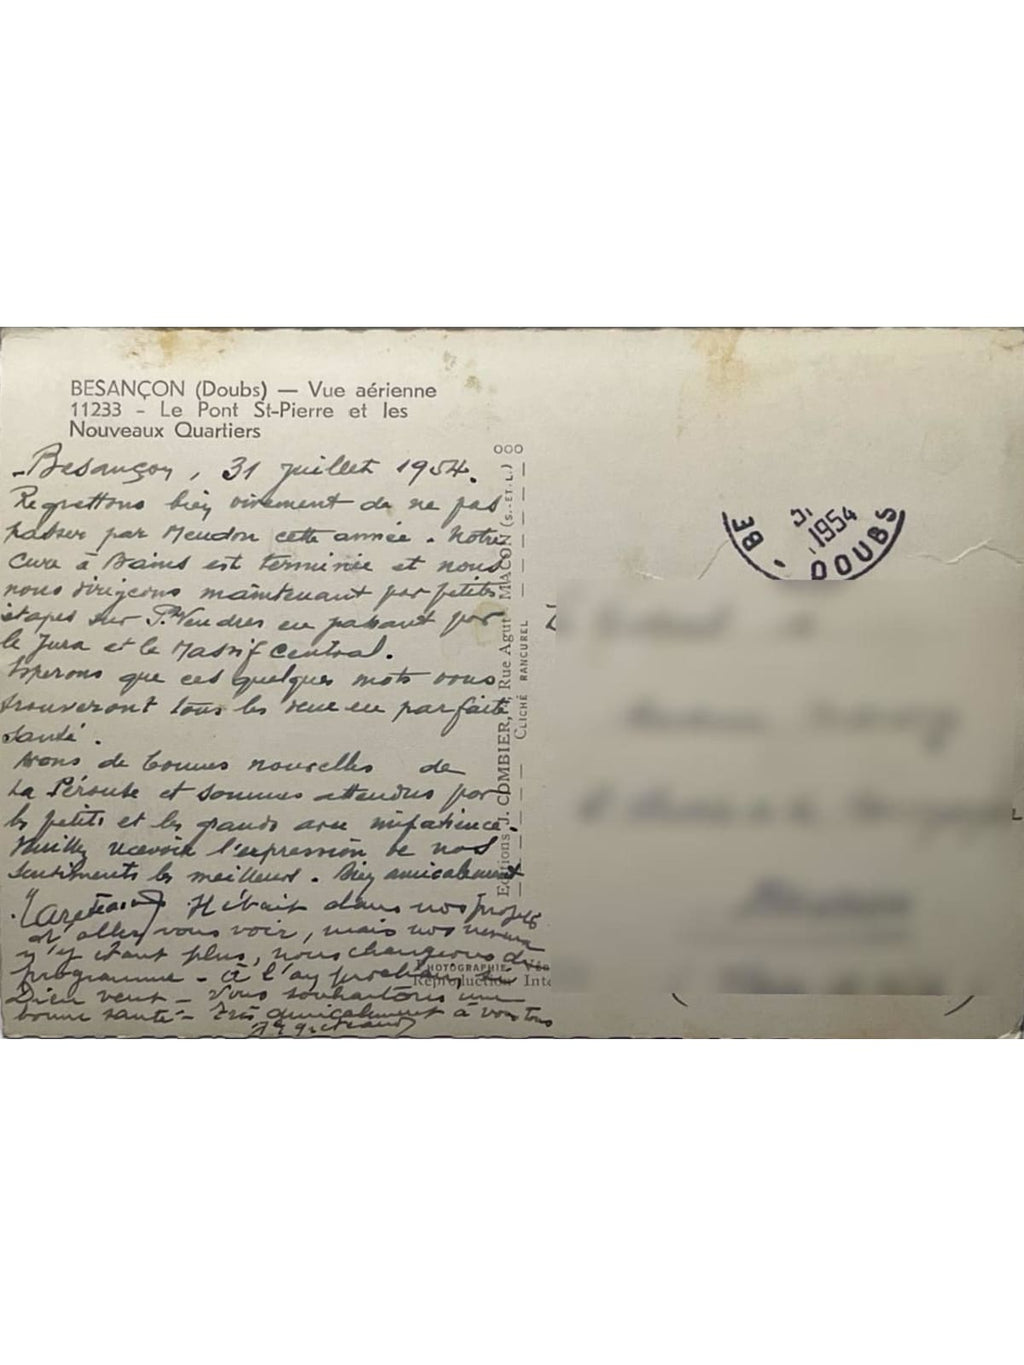 BESANÇON (Doubs) — Vue aérienne
11233 - Le Pont St-Pierre et les
Nouveaux Quartiers
Besançon, 31 juillet 1954.
Regrettons bien vivement de ne pas
passer par Meudon cette année. Notre
Cure à Bains est terminée et nous
nous dirigeons maintenant par petites
étapes sur Pt Vendres en passant par
le Jura et le Massif Central.
Esperons que ces quelques mots vous
trouveront tous les deux en parfaite
Santé.
Avons de bonnes nouvelles de
La Pérouse et sommes attendus par
les petits et les grands avec impatience.
Veuillez recevoir l'expression de nos
sentiments les meilleurs. Bien amicalement
Il était dans nos projets
d'aller vous voir, mais nos
n'y étant plus, nous changeons de
programme - à l'an prochain, si
Dieu veut - Vous souhaitons une
bonne santé - Très amicalement à vous tous
ooo
Editions J. COMBIER, Rue Agut MACON (S.-ET-L.)
CLICHÉ RANCUREL
PHOTOGRAPHIE
Reproduction Inte
BE
1954
DOUBS